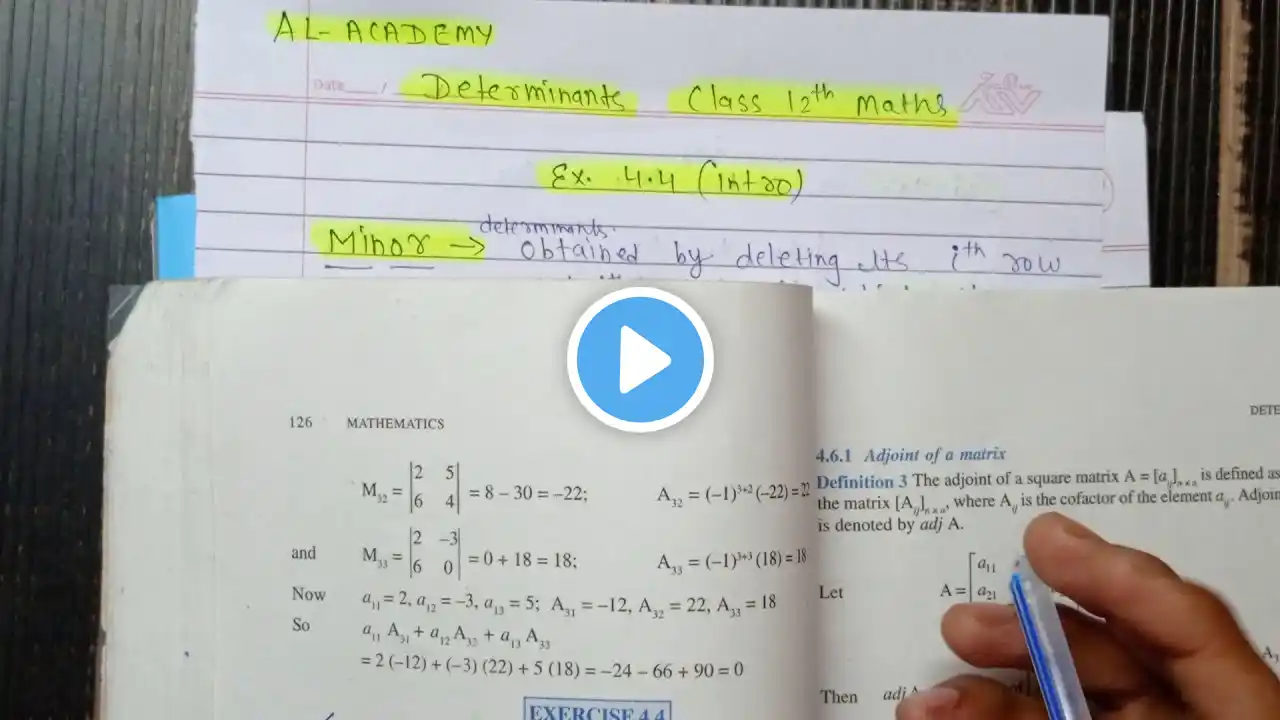 AL-ACADEMY
Date___/
Determinants Class 12th Maths
Ex. 4.4 (Intro)
determinants.
Minor → Obtained by deleting its ith row
126 MATHEMATICS
M₃₂ = |2 5; 6 4| = 8 – 30 = –22; A₃₂ = (–1)³⁺² (–22) = 22
and M₃₃ = |2 –3; 6 0| = 0 + 18 = 18; A₃₃ = (–1)³⁺³ (18) = 18
Now a₁₁ = 2, a₁₂ = –3, a₁₃ = 5; A₃₁ = –12, A₃₂ = 22, A₃₃ = 18
So a₁₁ A₃₁ + a₁₂ A₃₂ + a₁₃ A₃₃
= 2 (–12) + (–3) (22) + 5 (18) = –24 – 66 + 90 = 0
EXERCISE 4.4
DETE
4.6.1 Adjoint of a matrix
Definition 3 The adjoint of a square matrix A = [aᵢⱼ]ₙ ₓ ₙ is defined as
the matrix [Aᵢⱼ]ₙ ₓ ₙ, where Aᵢⱼ is the cofactor of the element aᵢⱼ. Adjoin
is denoted by adj A.
a₁₁
Let A = [ a₂₁
Then adj A